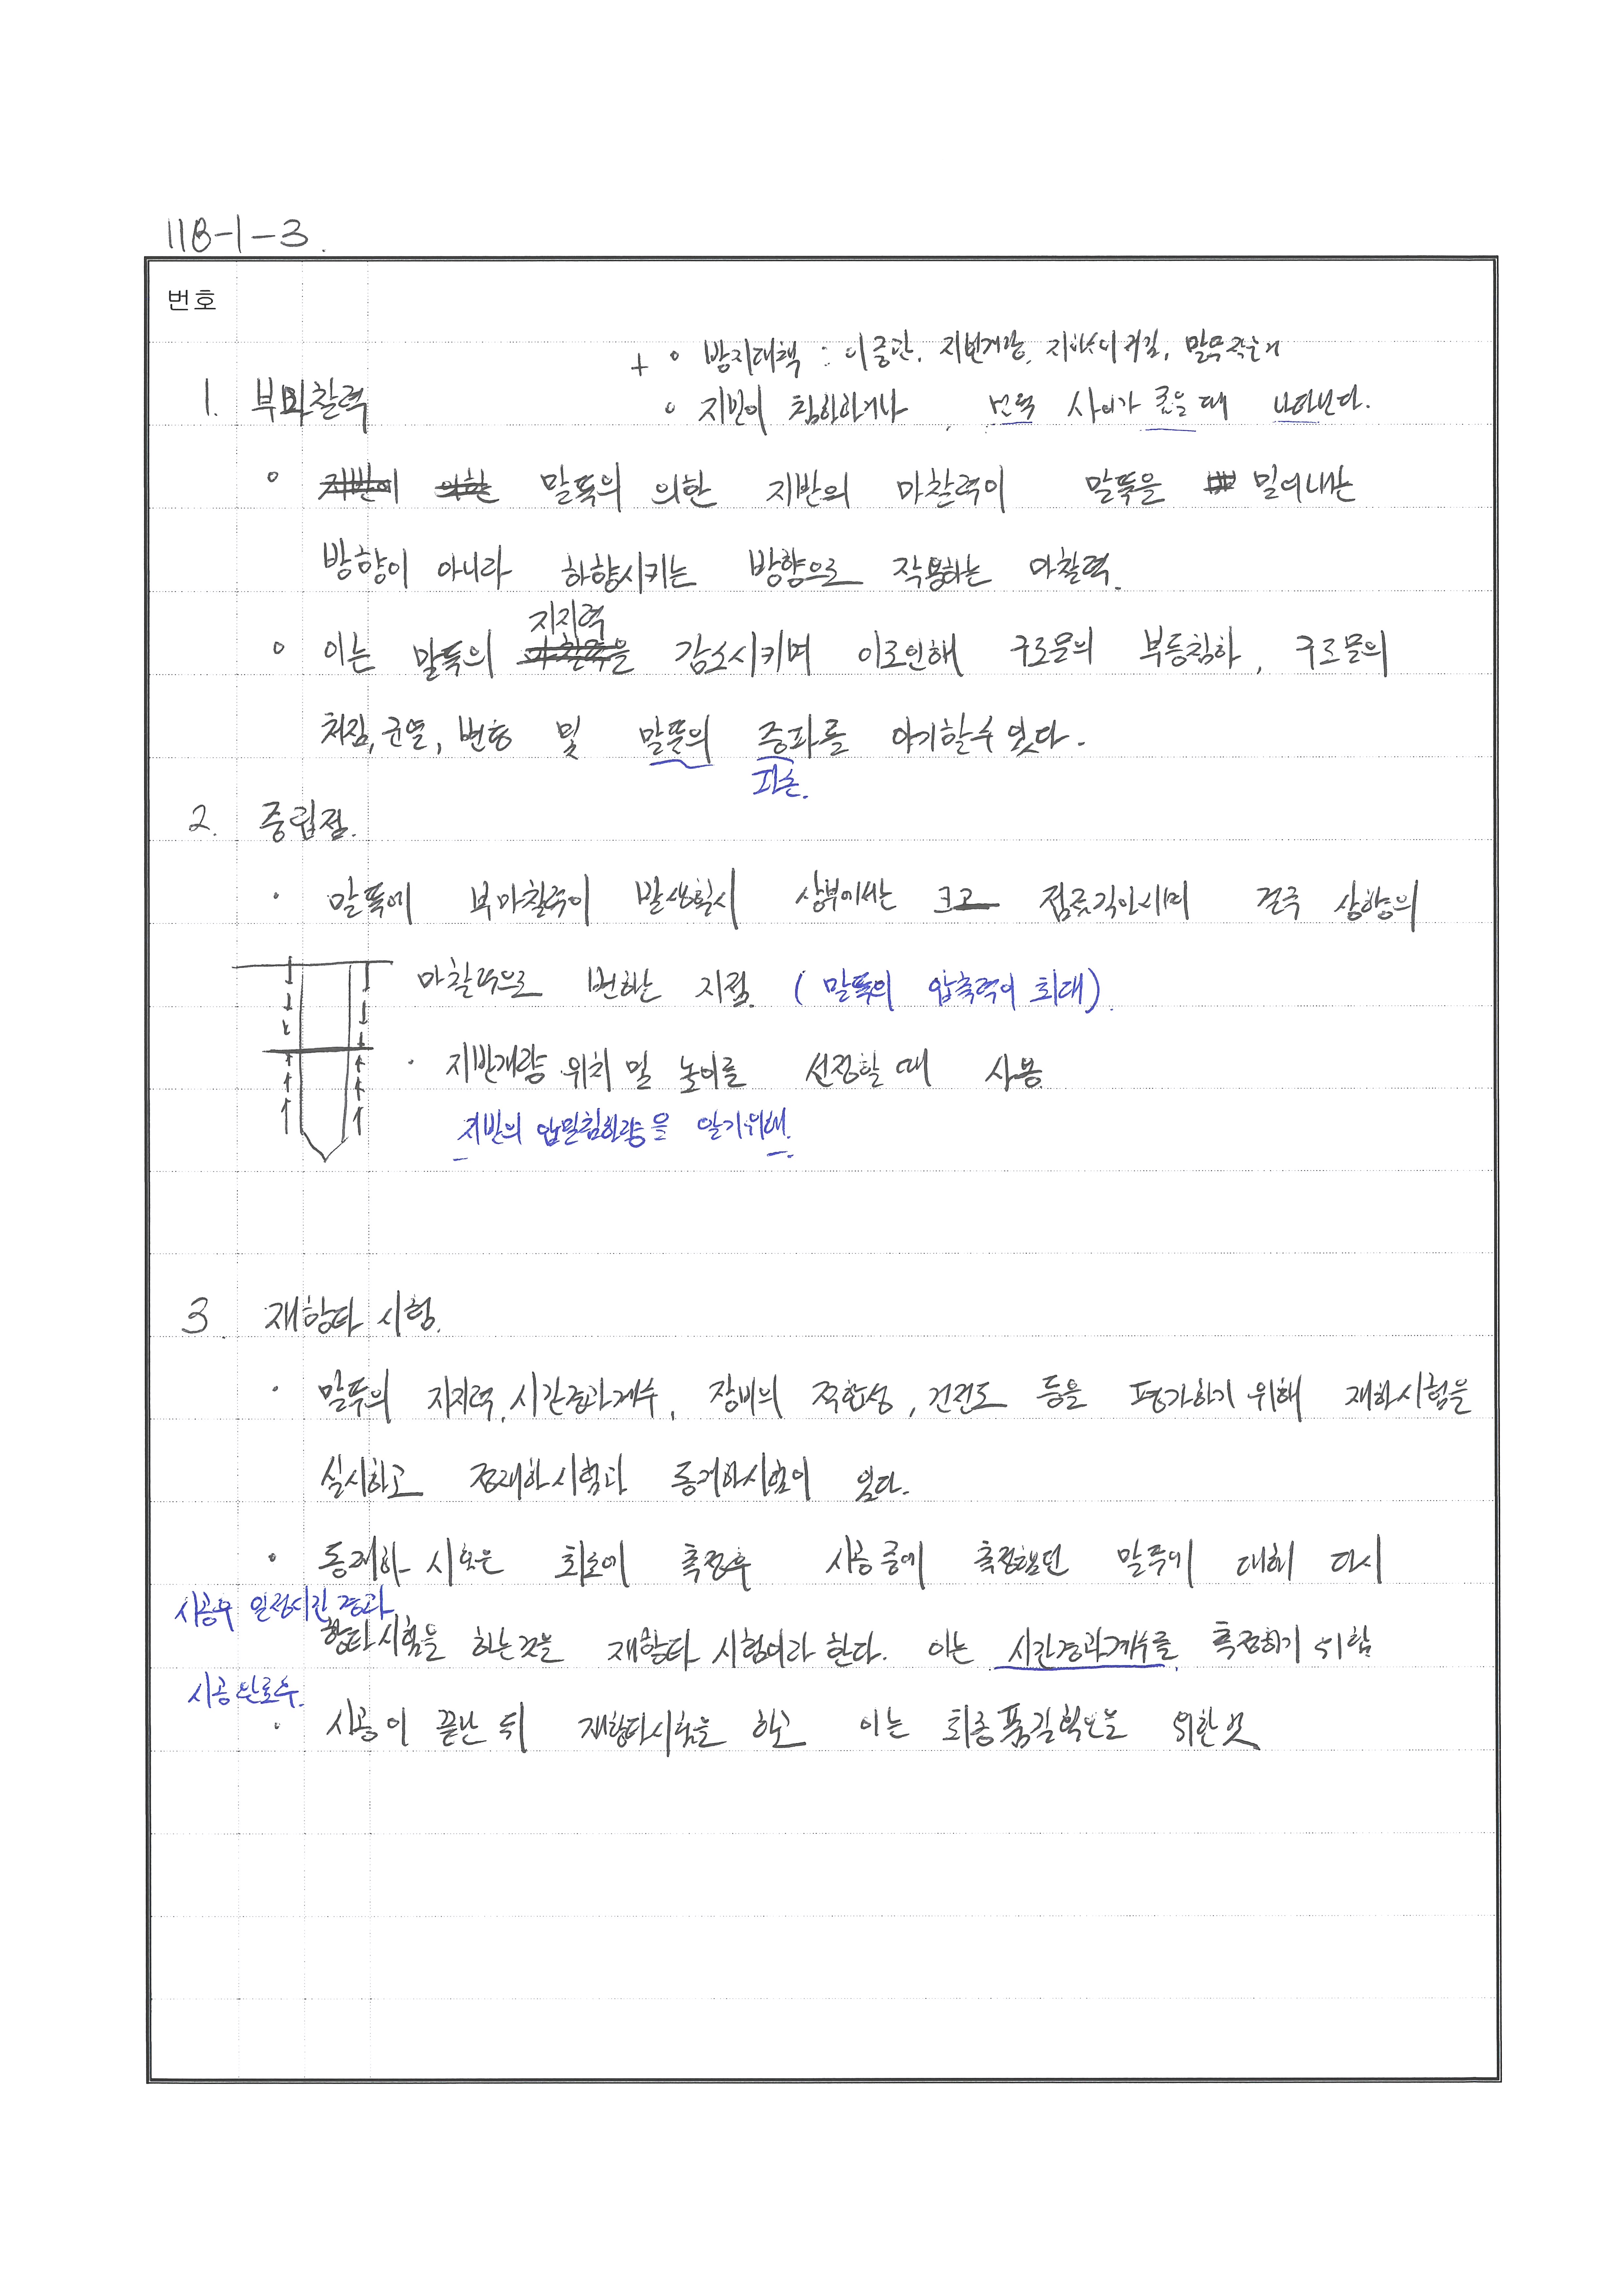 118-1-3.
번호
+ ◦ 방지대책 : 이중관, 지반개량, 지하수위저감, 말뚝
1. 부마찰력 ◦ 지반이 침하하거나, 말뚝 사이가 좁을 때 나타난다.
◦ 말뚝의 의한 지반의 마찰력이 말뚝을 밀어내는
방향이 아니라 하향시키는 방향으로 작용하는 마찰력.
지지력
◦ 이는 말뚝의 을 감소시키며 이로인해 구조물의 부등침하, 구조물의
처짐, 균열, 변형 및 말뚝의 중파를 야기할 수 있다.
파손.
2. 중립점.
· 말뚝에 부마찰력이 발생할시 상부에서는 크고 점점 결국 상향의
마찰력으로 변하는 지점. (말뚝의 압축력이 최대).
· 지반개량 위치 및 높이를 선정할 때 사용
지반의 압밀침하량을 알기위해.
3. 재항타 시험.
· 말뚝의 지지력, 시간경과계수, 장비의 적합성, 건전도 등을 평가하기 위해 재하시험을
실시하고 정재하시험과 동재하시험이 있다.
· 동재하 시험은 최초에 측정후 시공중에 측정했던 말뚝에 대해 다시
시공후 일정시간 경과
항타시험을 하는것을 재항타 시험이라 한다. 이는 시간경과계수를 측정하기 위함
시공완료후.
· 시공이 끝난 뒤 재항타시험을 하고 이는 최종품질확인을 위한 것